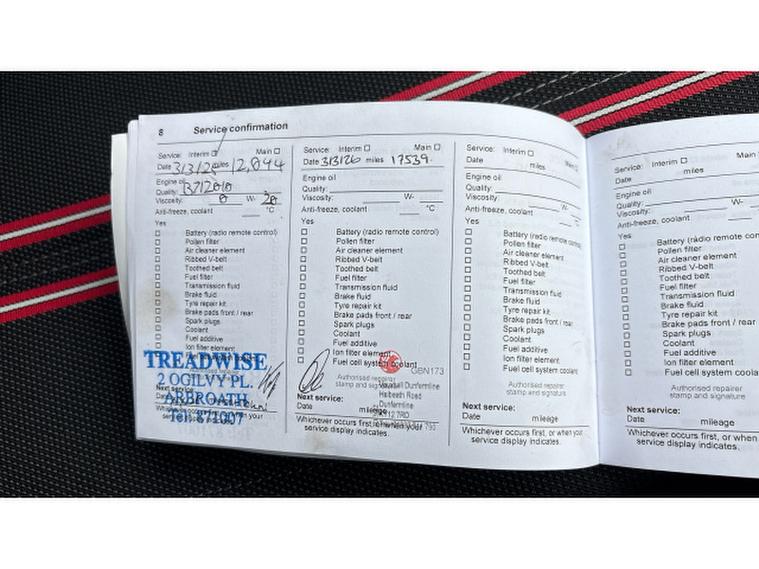 8 Service confirmation
Service: Interim Main
Date 3/3/25 miles 12,044
Engine oil
Quality:
Viscosity: 0 W- 20
Anti-freeze, coolant °C
Yes
Battery (radio remote control)
Pollen filter
Air cleaner element
Ribbed V-belt
Toothed belt
Fuel filter
Transmission fluid
Brake fluid
Tyre repair kit
Brake pads front / rear
Spark plugs
Coolant
Fuel additive
Ion filter element
TREADWISE
2 OGILVY PL.
ARBROATH
Tel: 871007
Next service:
Service: Interim Main
Date 3/3/26 miles 17539
Engine oil
Quality:
Viscosity: W-
Anti-freeze, coolant °C
Yes
Battery (radio remote control)
Pollen filter
Air cleaner element
Ribbed V-belt
Toothed belt
Fuel filter
Transmission fluid
Brake fluid
Tyre repair kit
Brake pads front / rear
Spark plugs
Coolant
Fuel additive
Ion filter element
Fuel cell system coolant
GBN173
Authorised repairer
stamp and signature
Vauxhall Dunfermline
Halbeath Road
Dunfermline
KY12 7RD
Next service:
Date mileage
Whichever occurs first, or when your
service display indicates.
Service: Interim Main
Date miles
Engine oil
Quality:
Viscosity: W-
Anti-freeze, coolant °C
Yes
Battery (radio remote control)
Pollen filter
Air cleaner element
Ribbed V-belt
Toothed belt
Fuel filter
Transmission fluid
Brake fluid
Tyre repair kit
Brake pads front / rear
Spark plugs
Coolant
Fuel additive
Ion filter element
Fuel cell system coolant
Authorised repairer
stamp and signature
Next service:
Date mileage
Whichever occurs first, or when your
service display indicates.
Service: Interim Main
Date miles
Engine oil
Quality:
Viscosity: W-
Anti-freeze, coolant
Yes
Battery (radio remote
Pollen filter
Air cleaner element
Ribbed V-belt
Toothed belt
Fuel filter
Transmission fluid
Brake fluid
Tyre repair kit
Brake pads front / rear
Spark plugs
Coolant
Fuel additive
Ion filter element
Fuel cell system coolant
Authorised repairer
stamp and signature
Next service:
Date mileage
Whichever occurs first, or when
service display indicates.